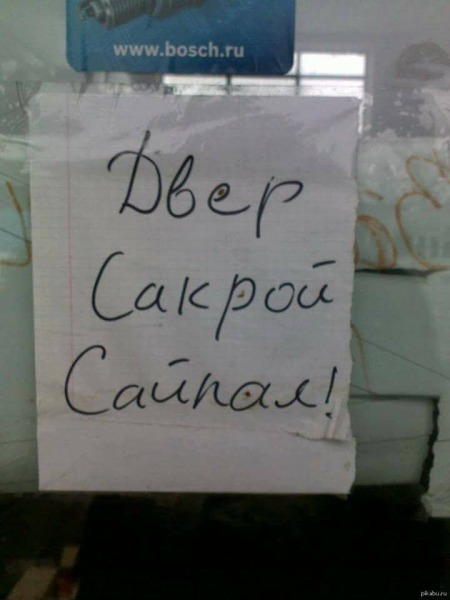 www.bosch.ru
Двер
Сакрой
Сайпал!
pikabu.ru